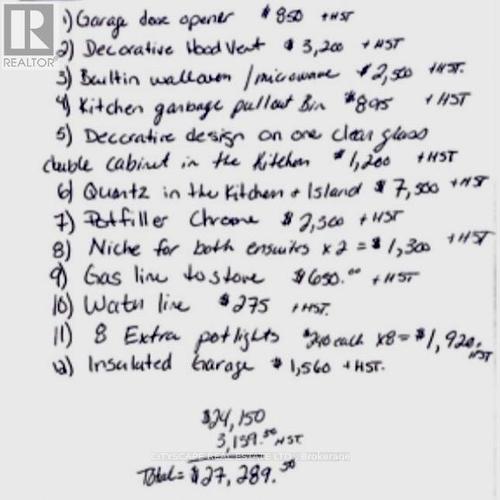 R
REALTOR
1) Garage door opener $850 +HST
2) Decorative Hood Vent $3,200 +HST
3) Builtin walloven / microwave $2,500 +HST.
4) Kitchen garbage pullout Bin $895 +HST
5) Decorative design on one clear glass
double cabinet in the Kitchen $1,200 +HST
6) Quartz in the Kitchen + Island $7,500 +HST
7) Potfiller Chrome $2,300 +HST
8) Niche for both ensuites x2 = $1,300 +HST
9) Gas line to stove $650.00 +HST
10) Water line $275 +HST.
11) 8 Extra potlights $240 each x8 = $1,920. HST
12) Insulated Garage $1,560 +HST.
$24,150
3,139.50 HST
CITYSCAPE REAL ESTATE LTD., Brokerage
Total = $27,289.50